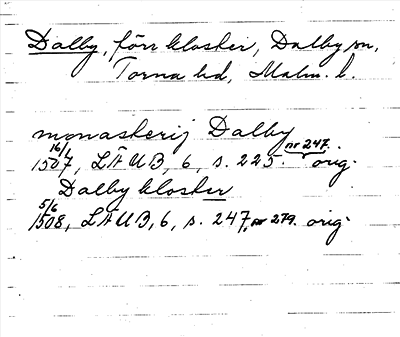 Dalby, förr kloster, Dalby sn,
Torna hd, Malm. l.
monasterij Dalby
16/1 1507, LÄUB, 6, s. 225. nr 247. orig.
Dalby kloster
5/6 1508, LÄUB, 6, s. 247, nr 279. orig.